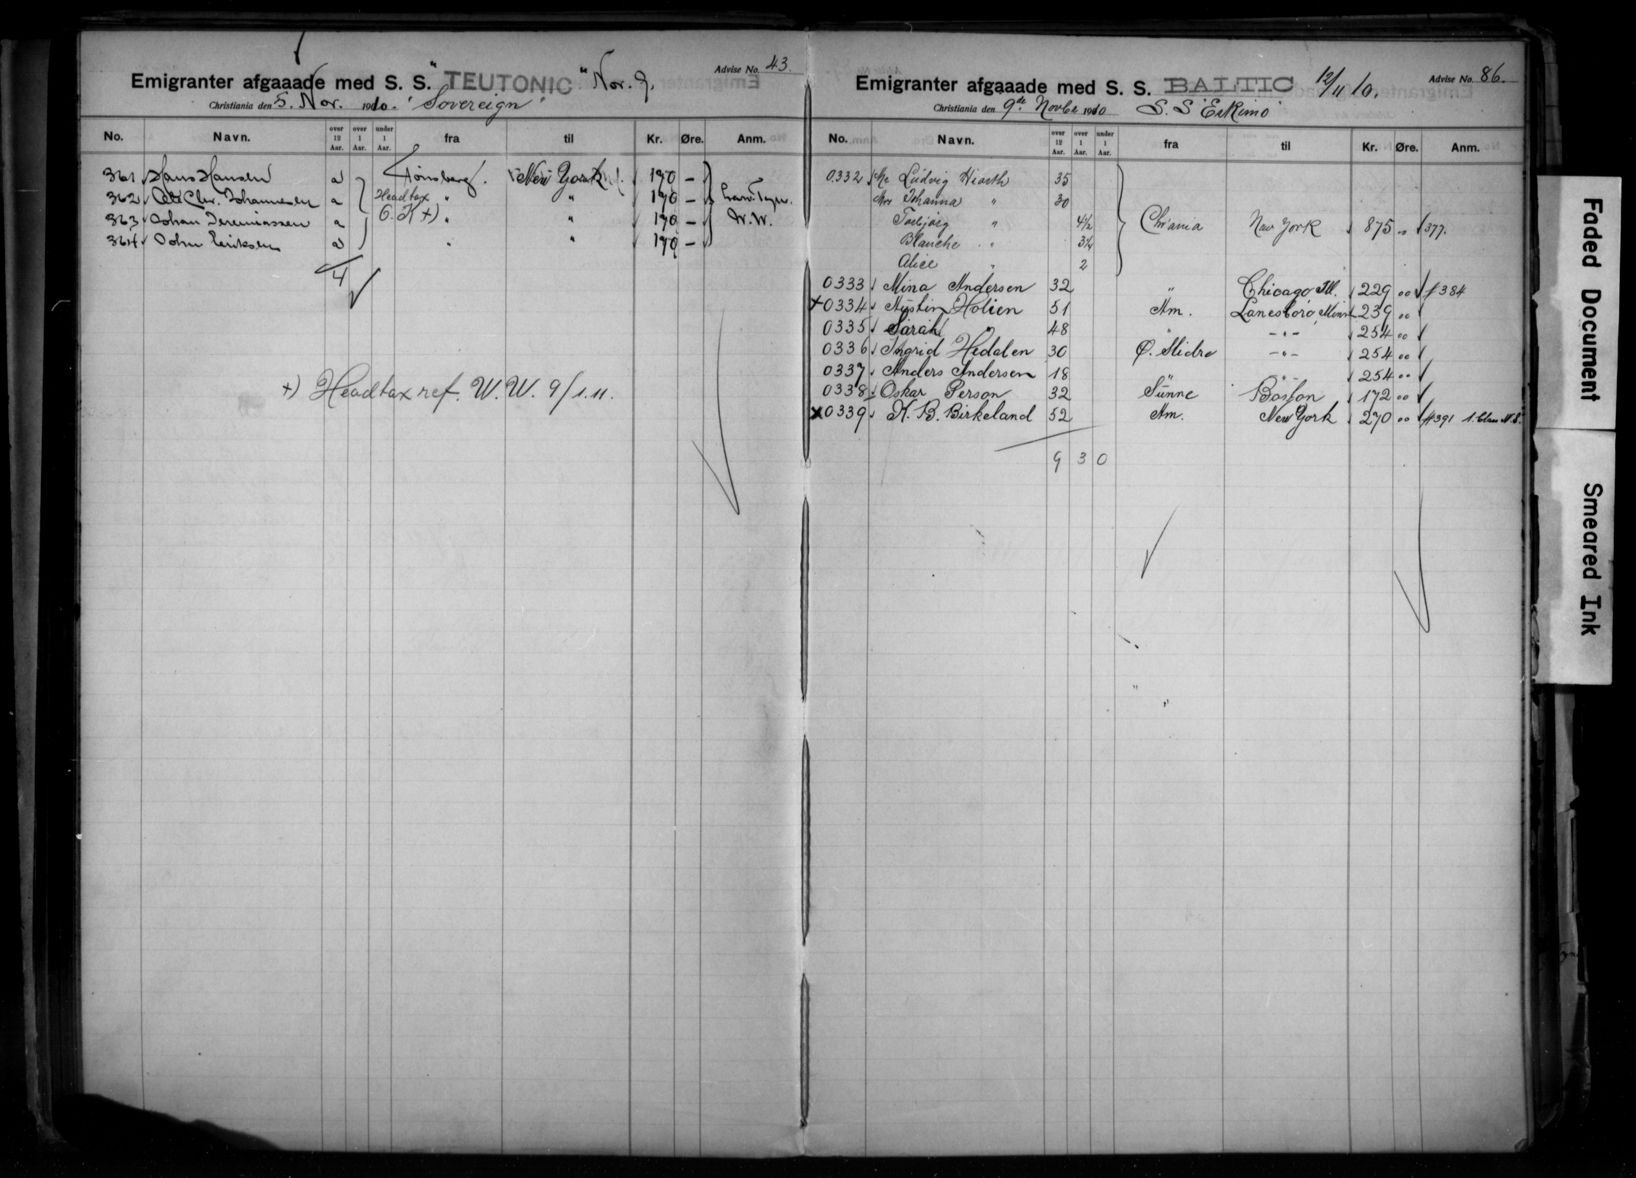 Advise No. 43.
Emigranter afgaaade med S. S. "TEUTONIC" Nov. 9.
Christiania den 5. Nov. 1910. "Sovereign"
No. Navn. over 12 Aar. over 1 Aar. under 1 Aar. fra til Kr. Øre. Anm.
361 Hans Hansen a Tønsberg. New York 190 —
362 Chr. Johannesen a Headtax " " 190 —
363 Johan Jeremiassen a O. K +) " " 190 — W. W.
364 John Eriksen a " " 190 —
4
+) Headtax ref. W. W. 9/1.11.
Advise No. 86.
Emigranter afgaaade med S. S. BALTIC 12/11 10.
Christiania den 9de Novbr 1910 S. S "Eskimo"
No. Navn. over 12 Aar. over 1 Aar. under 1 Aar. fra til Kr. Øre. Anm.
0332 Mr Ludvig Hiorth 35
Mrs Johanna " 30
Torbjørg " 4½ Chr'ania New York 875 " 377.
Blanche " 3¼
Alice " 2
0333 Mina Andersen 32 " Chicago Ill. 229 00 # 384
x 0334 Austin Holien 51 Am. Lanesboro Minn 239 00
0335 Sarah " 48 " -"- 254 00
0336 Ingrid Hedalen 30 Ø. Slidre -"- 254 00
0337 Anders Andersen 18 " -"- 254 00
0338 Oskar Person 32 Sunne Boston 172 00
x 0339 K. B. Birkeland 52 Am. New York 270 00 # 391 1. Class N. S.
9 3 0
Faded Document
Smeared Ink